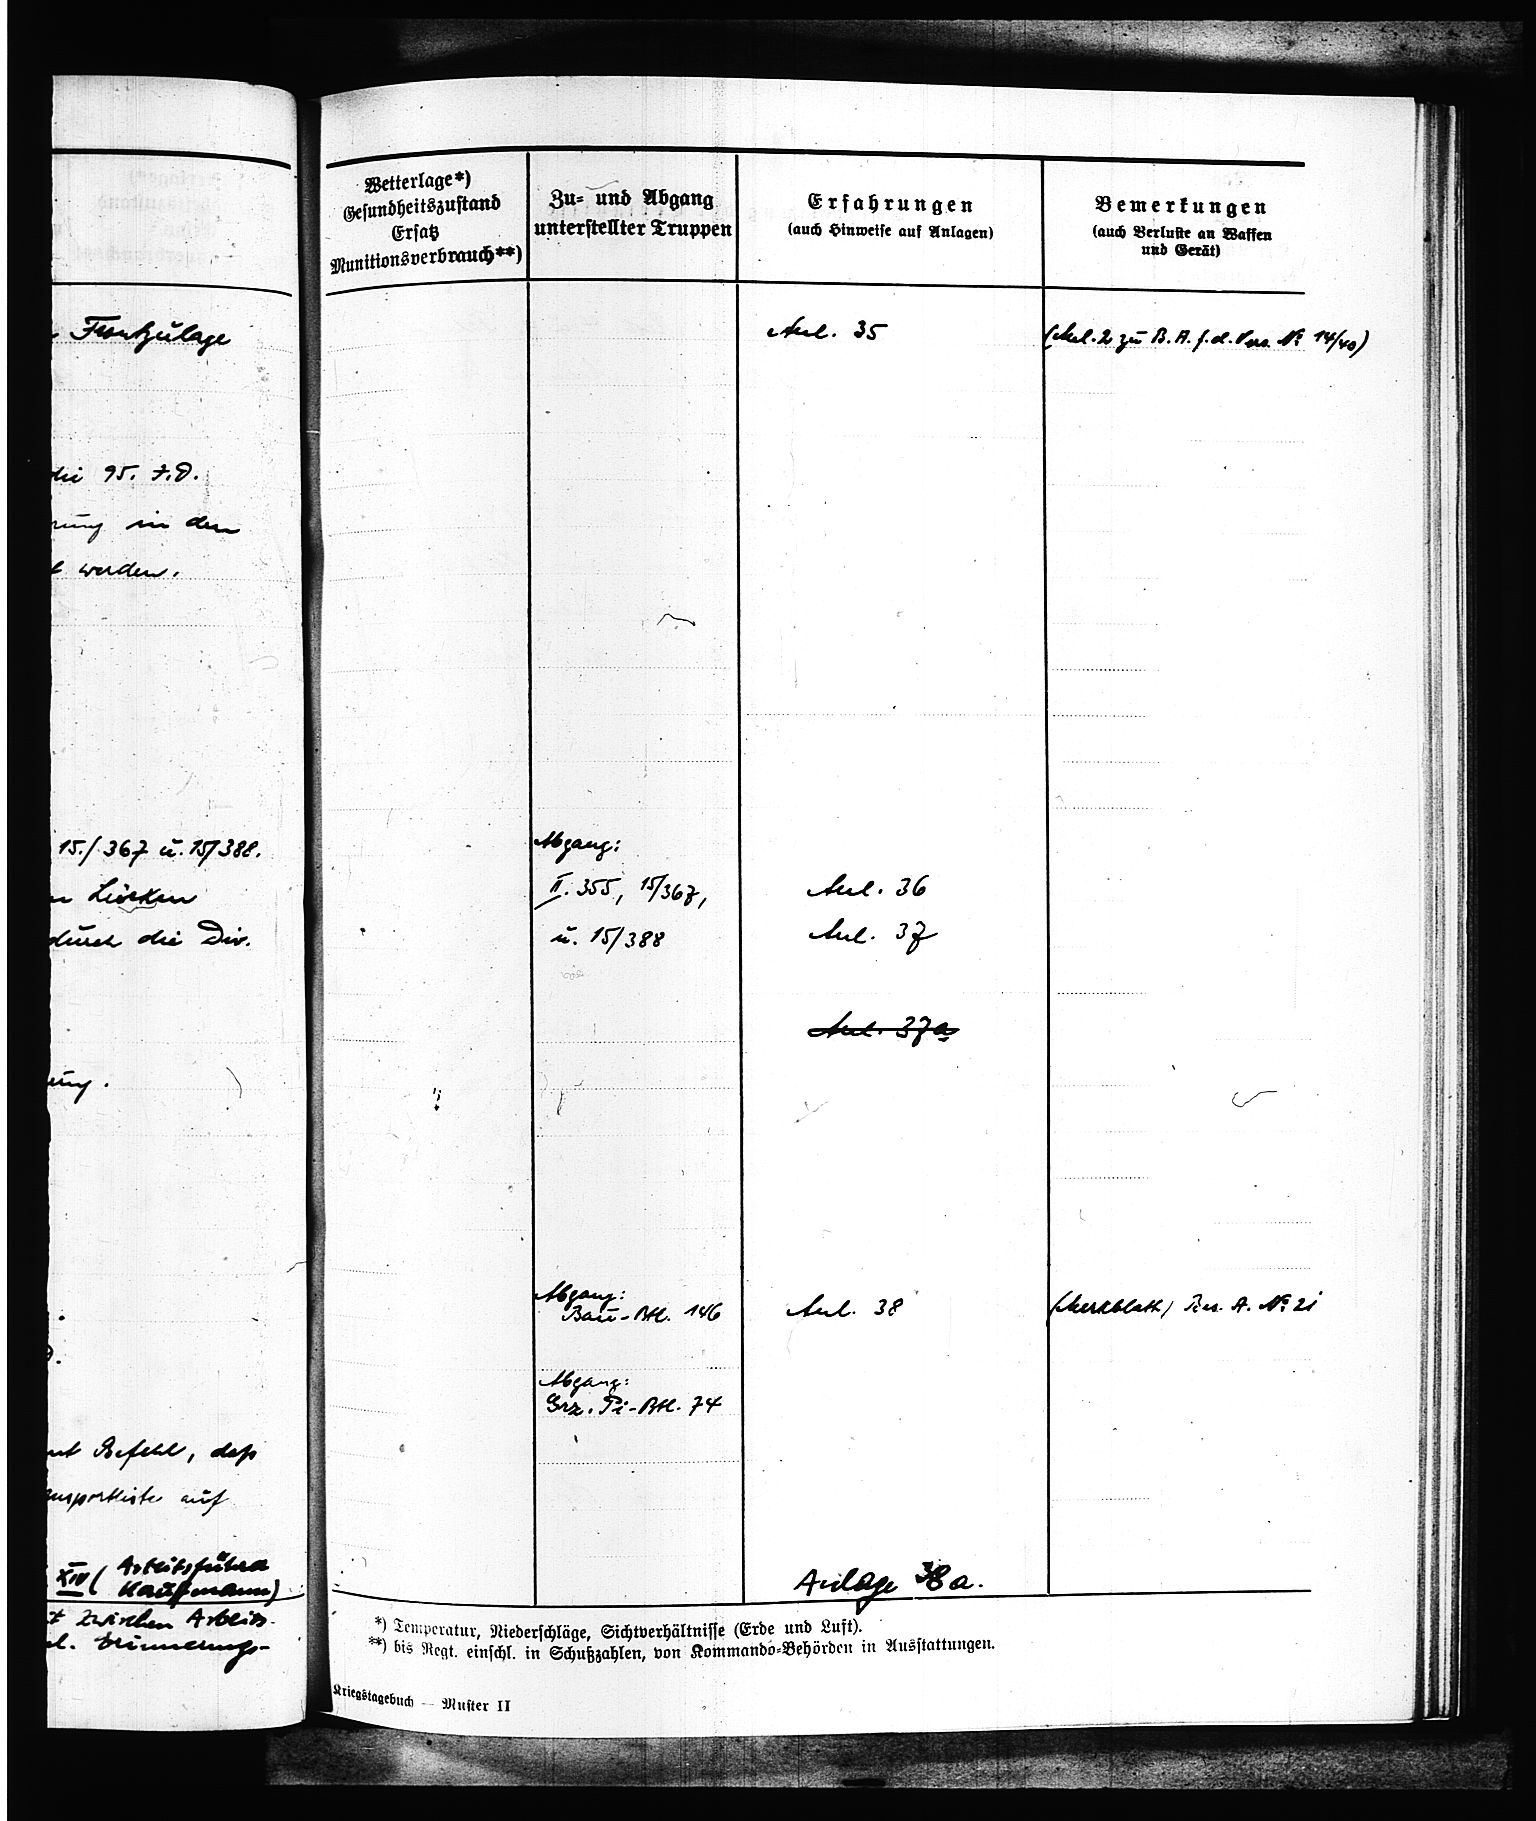 Frontzulage
die 95. I.D.
in den
werden.
15./367 u. 15/388.
Lücken
durch die Div.
Befehl, daß
auf
XIV (Arbeitsführer
Kauffmann)
zwischen Arbeits-
Erinnerungs-
Wetterlage*)
Gesundheitszustand
Ersatz
Munitionsverbrauch**)
Zu- und Abgang
unterstellter Truppen
Erfahrungen
(auch Hinweise auf Anlagen)
Bemerkungen
(auch Verluste an Waffen
und Gerät)
Anl. 35
(Anl. 2 zu B. A. f. d. Pers. Nr 14/40)
Abgang:
II. 355, 15/367,
u. 15/388
Anl. 36
Anl. 37
Anl. 37a
Abgang:
Bau-Btl. 146
Anl. 38
(Merkblatt) A. Nr 21
Abgang:
Grz. Pi-Btl. 74
Anlage 38a.
*) Temperatur, Niederschläge, Sichtverhältnisse (Erde und Luft).
**) bis Regt. einschl. in Schußzahlen, von Kommando-Behörden in Ausstattungen.
Kriegstagebuch — Muster II